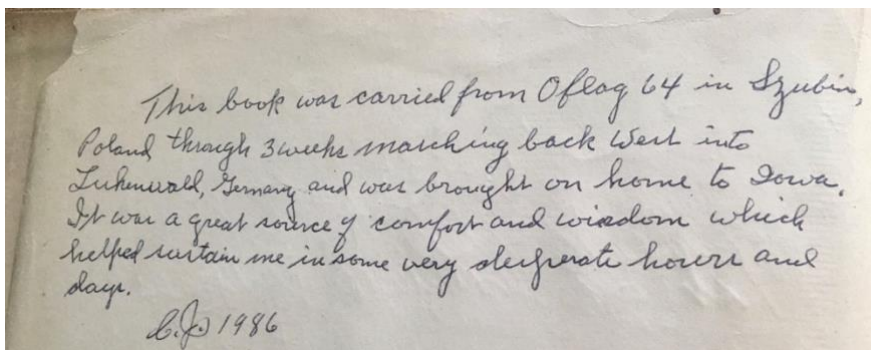 This book was carried from Oflag 64 in Szubin,
Poland through 3 weeks marching back West into
Lukenwald, Germany and was brought on home to Iowa.
It was a great source of comfort and wisdom which
helped sustain me in some very desperate hours and
days.
1986